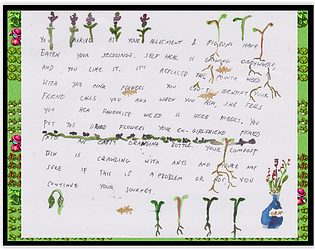 YOU ARRIVE AT YOUR ALLOTMENT & PIGEONS HAVE
EATEN YOUR SEEDLINGS, SELF HEAL IS GROWING EVERYWHERE
AND YOU LIKE IT. IT'S REPLACED THE WEED
WITH THE PINK FLOWERS YOU IDENTIFY. YOUR
FRIEND CALLS YOU AND WHEN YOU ASK, SHE TELLS
YOU HER FAVOURITE WEED IS HERB ROBERT. YOU
PUT THE DRIED FLOWERS YOUR EX-GIRLFRIEND PICKED
INTO AN EMPTY ORANGINA BOTTLE. YOUR COMPOST
BIN IS CRAWLING WITH ANTS AND YOU'RE NOT
SURE IF THIS IS A PROBLEM OR NOT. YOU
CONTINUE YOUR JOURNEY